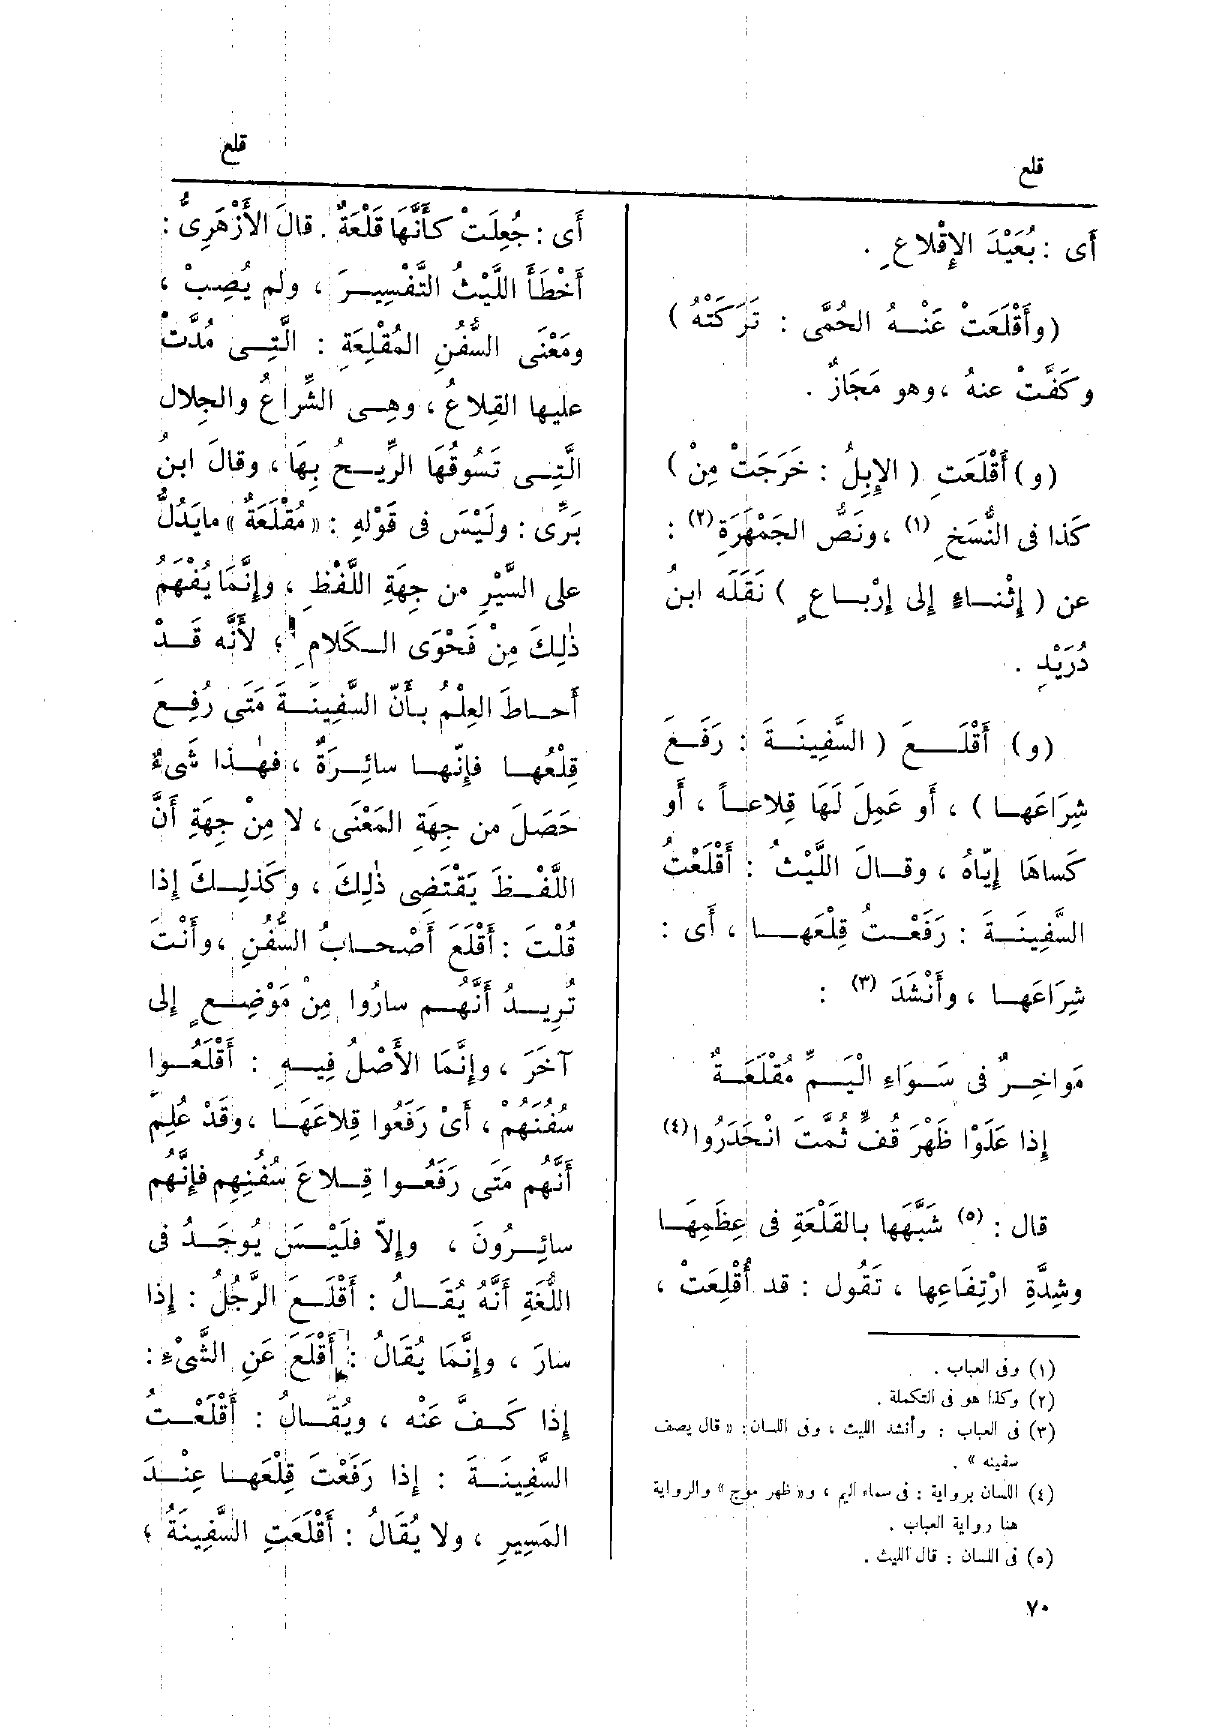 قلع
قلع
أى : بُعَيْدَ الإِقْلاعِ .
(وأَقْلَعَتْ عَنْهُ الحُمَّى : تَرَكَتْهُ )
وكَفَّتْ عنهُ ، وهو مَجَازٌ .
(و) أَقْلَعَتِ ( الإِبِلُ : خَرَجَتْ مِنْ )
كَذا فى النُّسَخِ (١) ، ونَصُّ الجَمْهَرَةِ (٢) :
عن ( إِثْناءٍ إلى إِرْباعٍ ) نَقَلَه ابنُ
دُرَيْدٍ .
(و) أَقْلَعَ ( السَّفِينَةَ : رَفَعَ
شِرَاعَها ) ، أو عَمِلَ لَهَا قِلاعاً ، أو
كَساها إِيّاهُ ، وقالَ اللَّيْثُ : أَقْلَعْتُ
السَّفِينَةَ : رَفَعْتُ قِلْعَها ، أى :
شِرَاعَها ، وأَنْشَدَ (٣) :
مَواخِرٌ فى سَواءِ الْيَمِّ مُقْلَعَةٌ
إِذا عَلَوْا ظَهْرَ قُفٍّ ثُمَّتَ انْحَدَرُوا (٤)
قال : (٥) شَبَّهَها بالقَلْعَةِ فى عِظَمِهَا
وشِدَّةِ ارْتِفَاعِها ، تَقُول : قد أُقْلِعَتْ ،
(١) وفى العباب .
(٢) وكذا هو فى التكملة .
(٣) فى العباب : وأنشد الليث ، وفى اللسان : « قال يصف
سفينه » .
(٤) اللسان برواية : فى سماء اليم ، و« ظهر موج » والرواية
هنا رواية العباب .
(٥) فى اللسان : قال الليث .
أى : جُعِلَتْ كأَنَّهَا قَلْعَةٌ . قالَ الأَزْهَرِىُّ :
أَخْطَأَ اللَّيْثُ التَّفْسِيرَ ، ولم يُصِبْ ،
ومَعْنَى السُّفُنِ المُقْلِعَةِ : الَّتِى مُدَّتْ
عليها القِلاعُ ، وهِى الشِّراعُ والجِلال
الَّتِى تَسُوقُهَا الرِّيحُ بِهَا ، وقالَ ابن
بَرِّى : ولَيْسَ فى قَوْلهِ : « مُقْلَعَةٌ » مايَدُلُّ
على السَّيْرِ من جِهَةِ اللَّفْظِ ، وإِنَّمَا يُفْهَمُ
ذٰلِكَ مِنْ فَحْوَى الكَلامِ ؛ لأَنَّه قَدْ
أَحاطَ العِلْمُ بأَنّ السَّفِينَةَ مَتَى رُفِعَ
قِلْعُها فإِنّها سائِرَةٌ ، فهٰذا شَىءٌ
حَصَلَ من جِهَةِ المَعْنَى ، لا مِنْ جِهَةِ أَنَّ
اللَّفْظَ يَقْتَضِى ذٰلِكَ ، وكَذٰلِكَ إِذا
قُلْتَ : أَقْلَعَ أَصْحابُ السُّفُنِ ، وأَنْتَ
تُرِيدُ أَنَّهُم سارُوا مِنْ مَوْضِعٍ إلى
آخَرَ ، وإِنَّمَا الأَصْلُ فِيهِ : أَقْلَعُوا
سُفُنَهُمْ ، أَىْ رَفَعُوا قِلاعَهَا ، وقَدْ عُلِمَ
أَنَّهُم مَتَى رَفَعُوا قِلاعَ سُفُنِهِم فإِنَّهُم
سائِرُونَ ، وإِلاّ فلَيْسَ يُوجَدُ فى
اللُّغَةِ أَنَّهُ يُقَالُ : أَقْلَعَ الرَّجُلُ : إِذا
سارَ ، وإِنَّمَا يُقَالُ : أَقْلَعَ عَنِ الشَّىْءِ :
إِذا كَفَّ عَنْه ، ويُقَالُ : أَقْلَعْتُ
السَّفِينَةَ : إِذا رَفَعْتَ قِلْعَها عِنْدَ
المَسِيرِ ، ولا يُقَالُ : أَقْلَعَتِ السَّفِينَةُ ،
٧٠